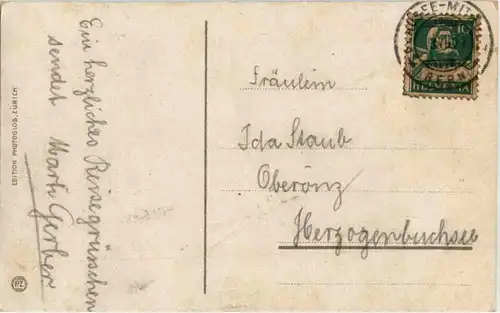 Ein herzliches Reisegrüsschen
sendet Marti Gerber
EDITION PHOTOGLOB, ZÜRICH
PZ
Fräulein
Ida Staub
Oberönz
Herzogenbuchsee
10
HELVETIA
BERN